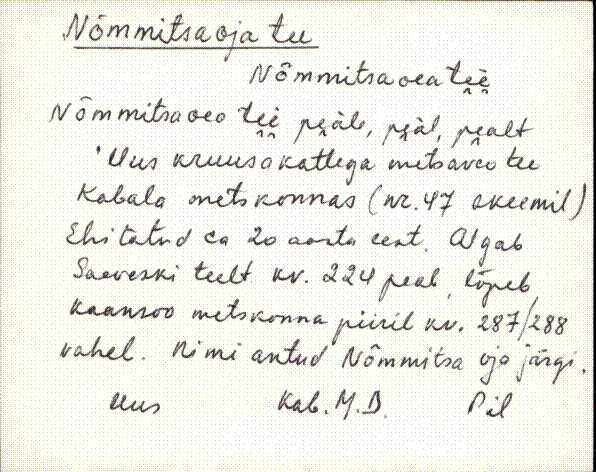 Nõmmitsaoja tee
Nõmmitsaoea tèè
Nõmmitsaoeo tèè peäle, peäl, pealt
'Uus kruusakattega metsaveo tee
Kabala metskonnas (nr. 47 skeemil)
Ehitatud ca 20 aasta eest. Algab
Saeveski teelt kv. 224 peal, lõpeb
Kaansoo metskonna piiril kv. 287/288
vahel. Nimi antud Nõmmitsa oja järgi.
Uus Kab. M.D. Pil